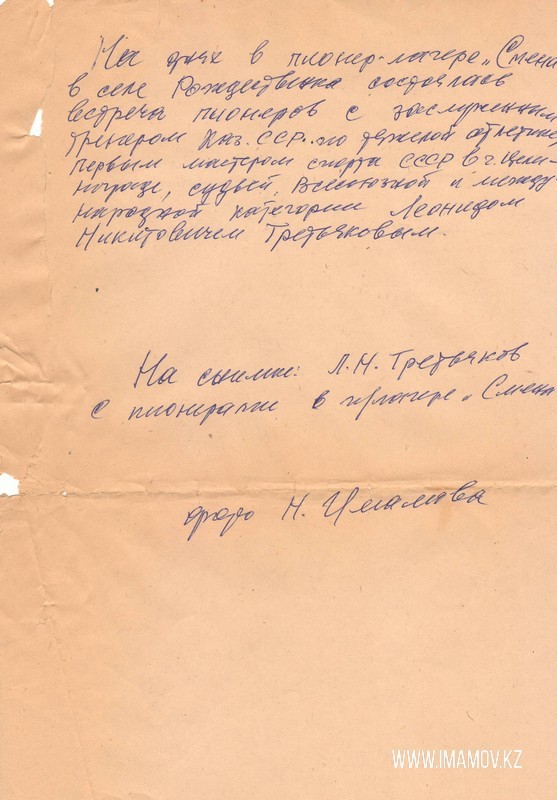 На днях в пионер-лагере „Смена
в селе Рождественка состоялась
встреча пионеров с заслуженным
тренером Каз. ССР. по тяжелой атлетике,
первым мастером спорта СССР в г. Цели-
нограде, судьёй Всесоюзной и между-
народной категории Леонидом
Никитовичем Третьяковым.
На снимке: Л.Н. Третьяков
с пионерами в п/лагере „Смена
фото Н. Имамова
WWW.IMAMOV.KZ